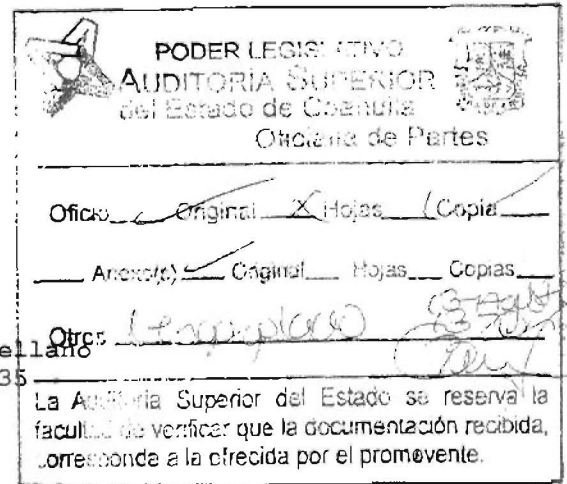 PODER LEGISLATIVO
AUDITORÍA SUPERIOR
del Estado de Coahuila
Oficialía de Partes
Oficio Original X Hojas 1 Copia
Anexo(s) Original Hojas Copias
Otros
ellano
35
La Auditoría Superior del Estado se reserva la
facultad de verificar que la documentación recibida,
corresponde a la ofrecida por el promovente.